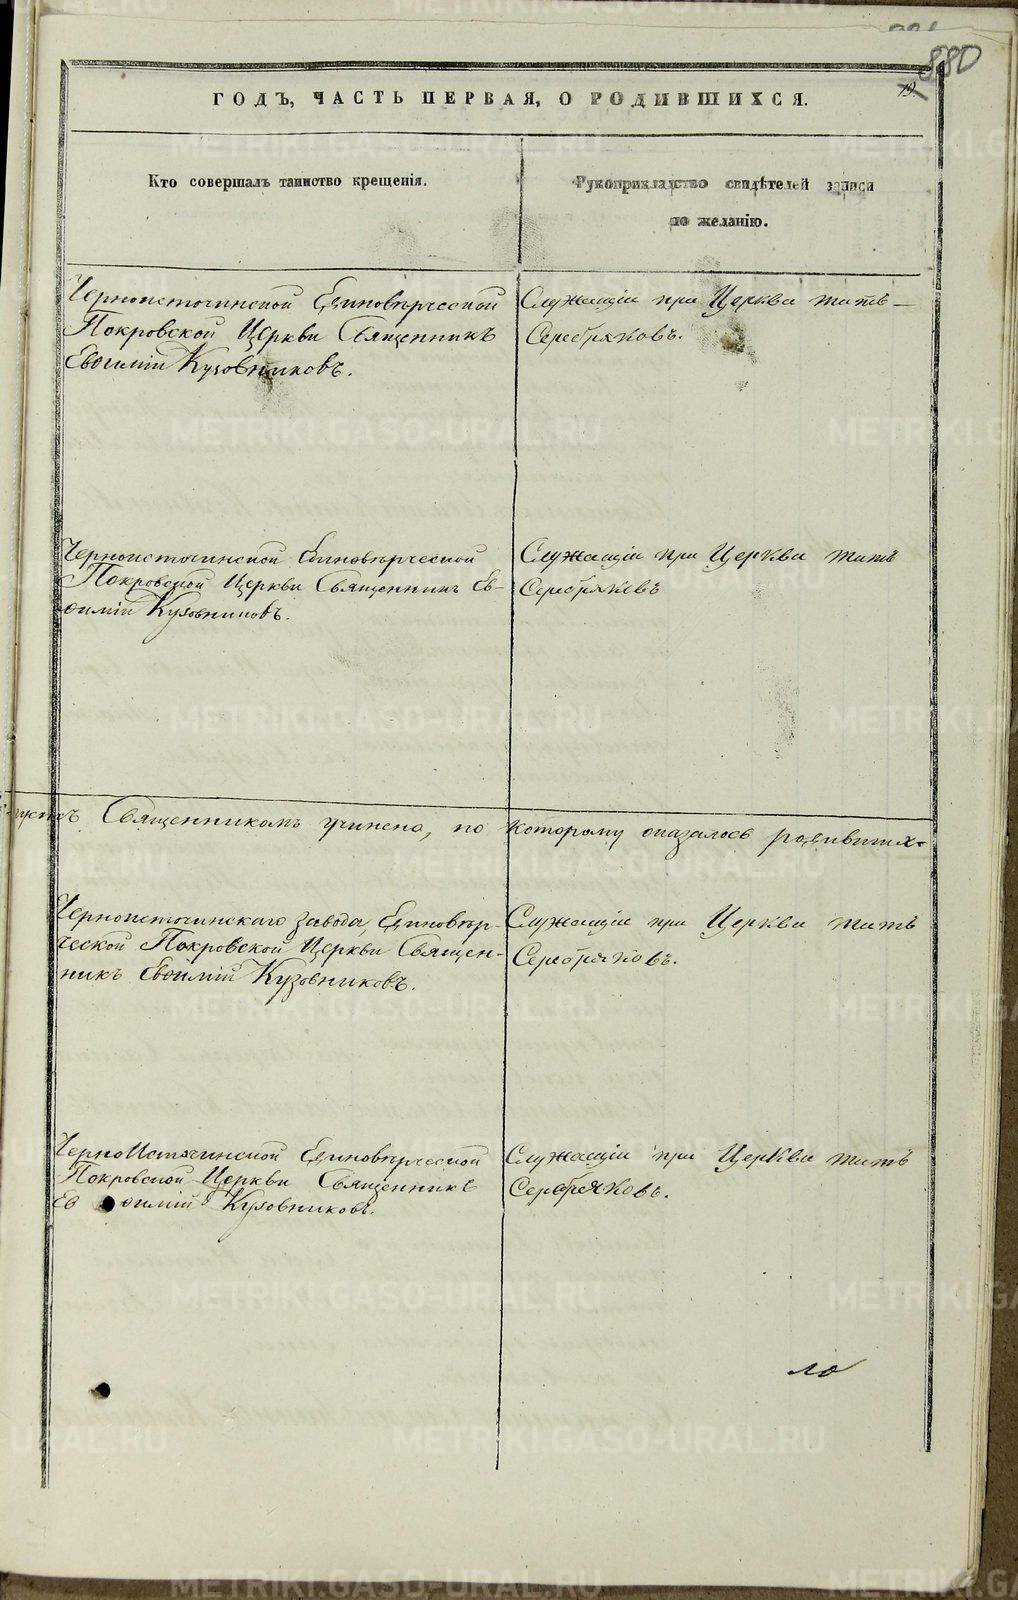 880
19
ГОДЪ, ЧАСТЬ ПЕРВАЯ, О РОДИВШИХСЯ.
Кто совершалъ таинство крещенія.
Рукоприкладство свидѣтелей записи
по желанію.
Черноисточинской Единовѣрческой
Покровской Церкви Священникъ
Евѳимій Кузовниковъ.
Служащій при Церкви
Серебряковъ.
Черноисточинской Единовѣрческой
Покровской Церкви Священникъ Ев-
ѳимій Кузовниковъ.
Служащій при Церкви
Серебряковъ
Священникомъ учинено, по которому оказалось родившихъ
Черноисточинскаго завода, Единовѣр-
ческой Покровской Церкви Священ-
никъ Евѳимій Кузовниковъ.
Служащій при Церкви
Серебряковъ.
ЧерноИсточинской Единовѣрческой
Покровской Церкви Священникъ
Ев ѳимій Кузовниковъ.
Служащій при Церкви
Серебряковъ.
METRIKI.GASO-URAL.RU